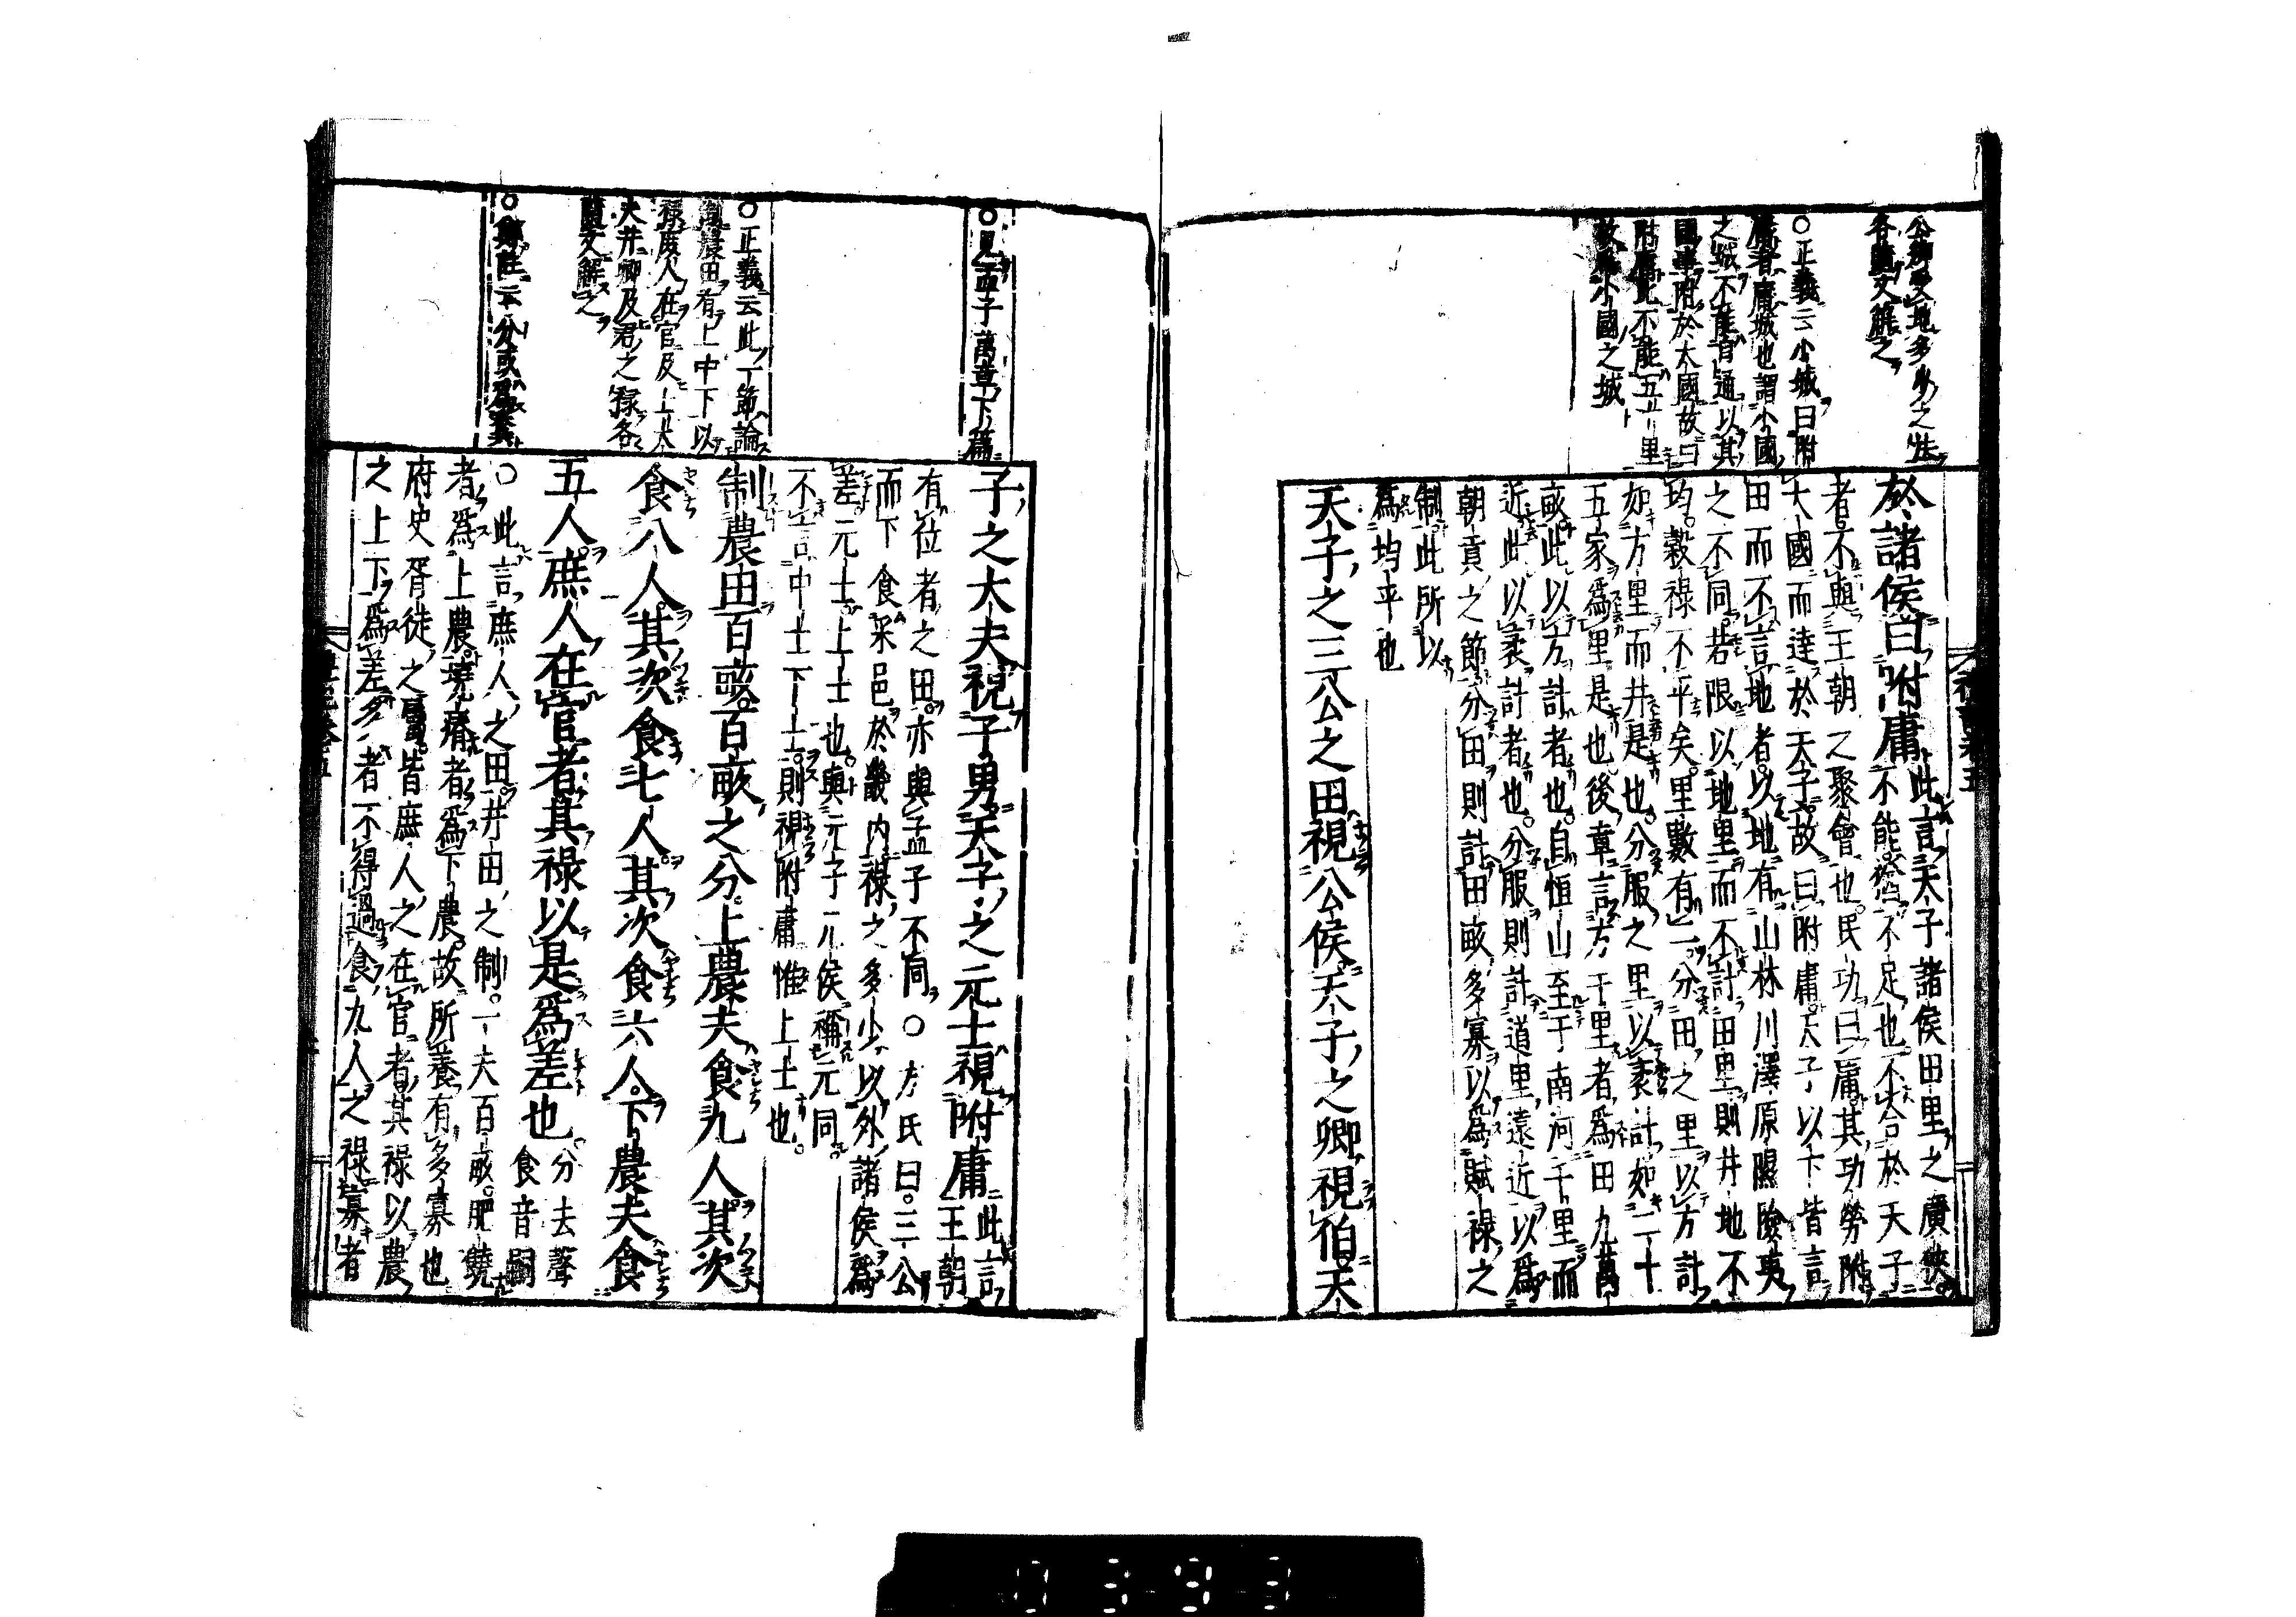 公卿受地多少之法
各隨文解之
○正義云小城曰附
庸者庸城也謂小國
之城不能自通以其
國事附於大國故曰
附庸此不能五十里
故為小國之城
於諸侯曰附庸 此言天子諸侯田里之廣狹
不能猶不足也不合於天子
者不與王朝之聚會也民功曰庸其功勞附
大國而達於天子故曰附庸天子以下皆言
田而不言地者以地有山林川澤原隰險夷
之不同若限以地里而不計田里則井地不
均穀祿不平矣里數有二分田之里以方計
如方里而井是也分服之里以袤計如二十
五家為里是也後章言方千里者為田九萬
畝此以方計者也自恒山至于南河千里而
近此以袤計者也分服則計道里遠近以為
朝貢之節分田則計田畝多寡以為賦祿之
制此所以
為均平也
天子之三公之田視公侯天子之卿視伯天
○見孟子萬章下篇
○正義云此一節論
制農田有上中下以
祿庶人在官及士大
夫并卿及君之祿各
隨文解之
○鄭註云分或為糞
子之大夫視子男天子之元士視附庸 此言
王朝
有位者之田亦與孟子不同○方氏曰三公
而下食采邑於畿内祿之多少以外諸侯為
差元士上士也與元子元侯稱元同
不言中士下士則視附庸惟上士也
制農田百畝百畝之分上農夫食九人其次
食八人其次食七人其次食六人下農夫食
五人庶人在官者其祿以是為差也 分去聲
食音嗣
○此言庶人之田井田之制一夫百畝肥饒
者為上農墝瘠者為下農故所養有多寡也
府史胥徒之屬皆庶人之在官者其祿以農
之上下為差多者不得過食九人之祿寡者